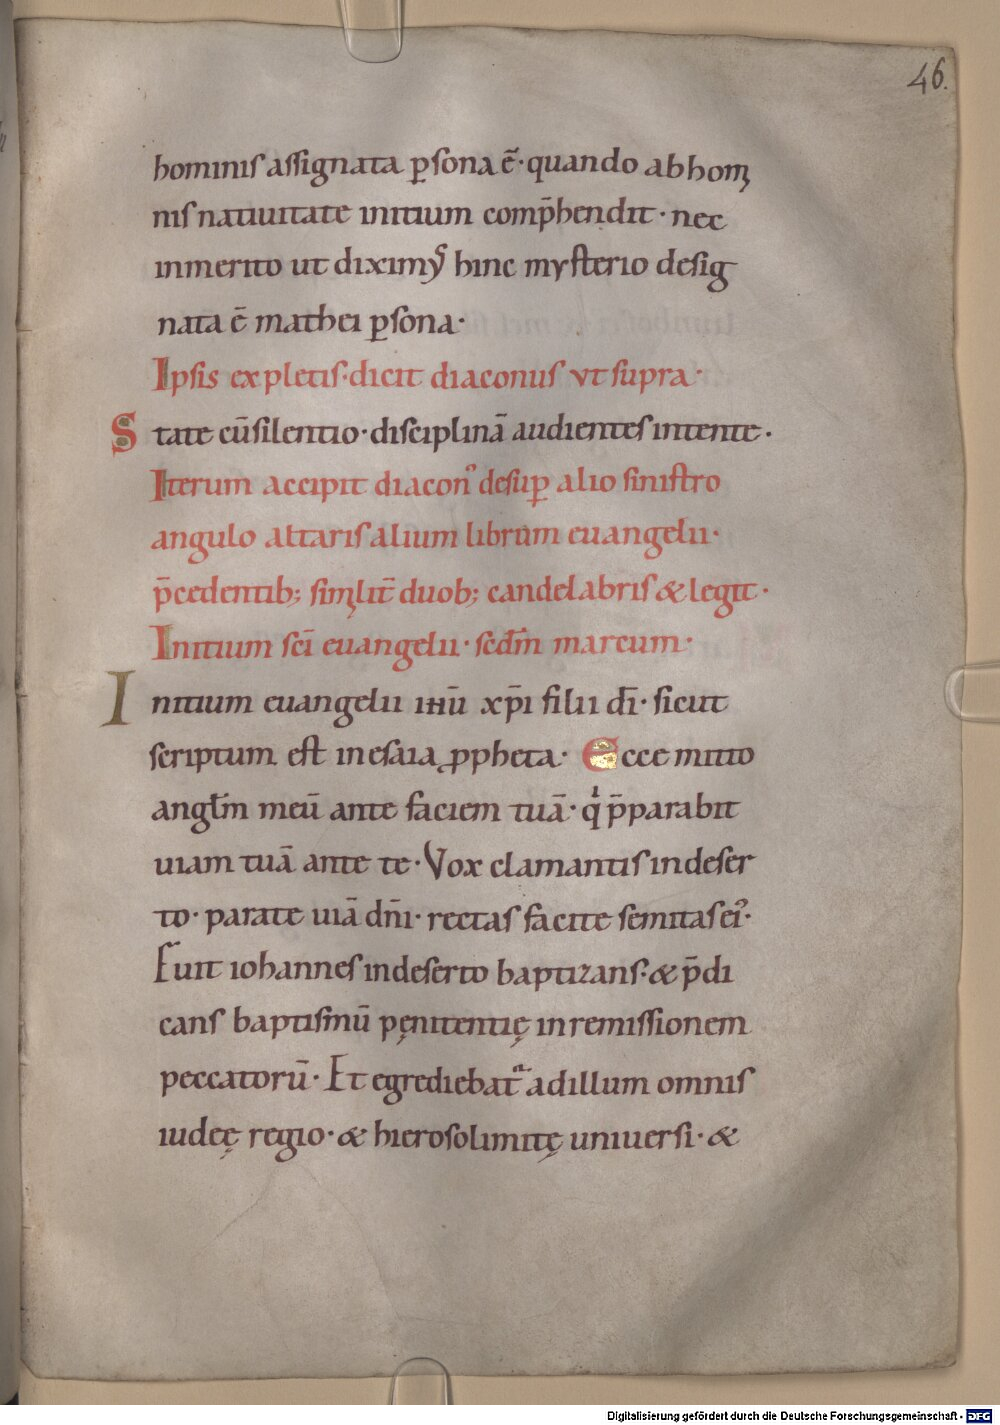 46.
hominis assignata p̲sona ē· quando ab homi
nis nativitate initium comp̄hendit· nec
inmerito ut diximꝰ hinc mysterio desig
nata ē mathei p̲sona·
Ipsis expletis· dicit diaconus ut supra·
State cū silentio· disciplinā audientes intente·
Iterum accipit diaconꝰ desup̲ alio sinistro
angulo altaris alium librum euangelii·
p̄cedentib; similit̄ duob; candelabris & legit·
Initium sc̄i euangelii· scd̄m marcum·
Initium euangelii ihū xp̄i filii dī· sicut
scriptum est in esaia ꝓpheta· Ecce mitto
angl̄m meū ante faciem tuā· qͥ p̄parabit
uiam tuā ante te· Vox clamantis in deser
to· parate uiā dn̄i· rectas facite semitas eiꝰ·
Fuit iohannes in deserto baptizans· & p̄di
cans baptismū pęnitentię in remissionem
peccatorū· Et egrediebat᷑ ad illum omnis
iudeę regio· & hierosolimitę uniuersi· &
Digitalisierung gefördert durch die Deutsche Forschungsgemeinschaft - DFG